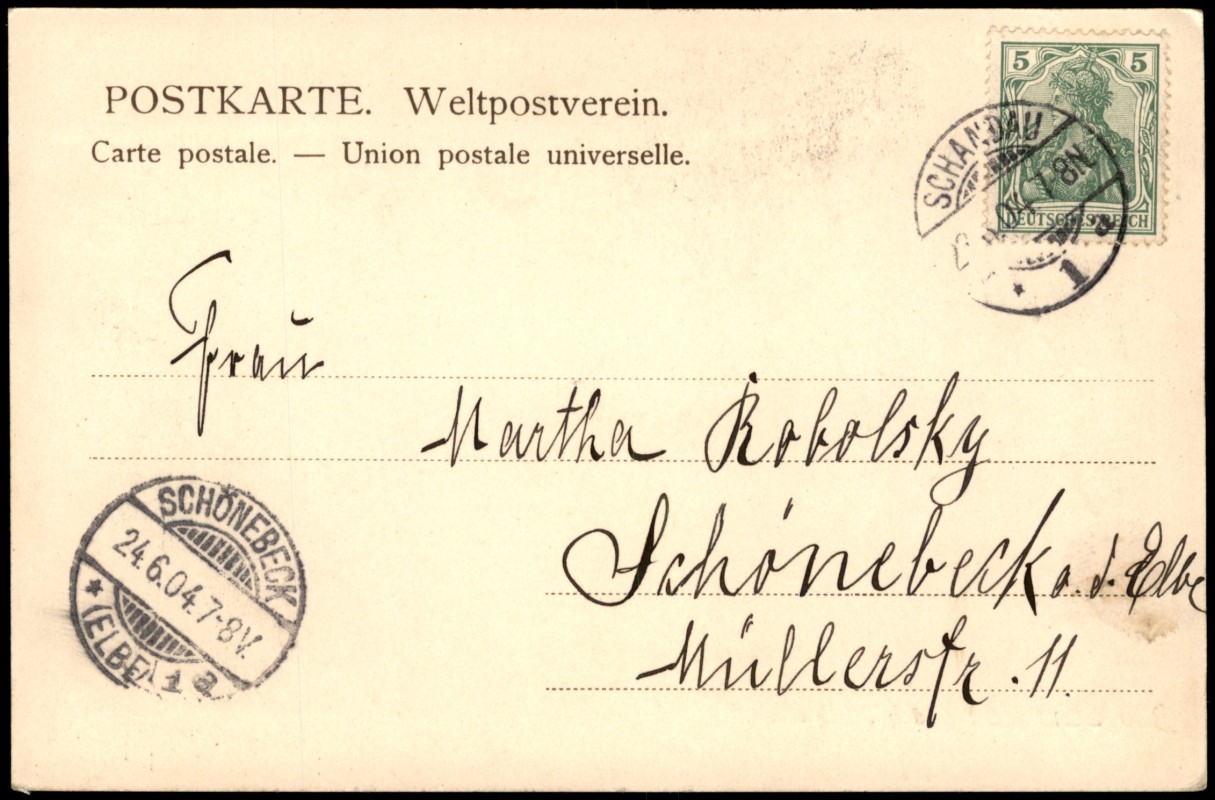 POSTKARTE. Weltpostverein.
Carte postale. — Union postale universelle.
5 5
DEUTSCHES REICH
SCHANDAU
04. 7-8N.
* 1 a
Frau
Martha Robolsky
Schönebeck a. d. Elbe
Müllerstr. 11.
SCHÖNEBECK
24.6.04.7-8V.
* (ELBE) 1 a